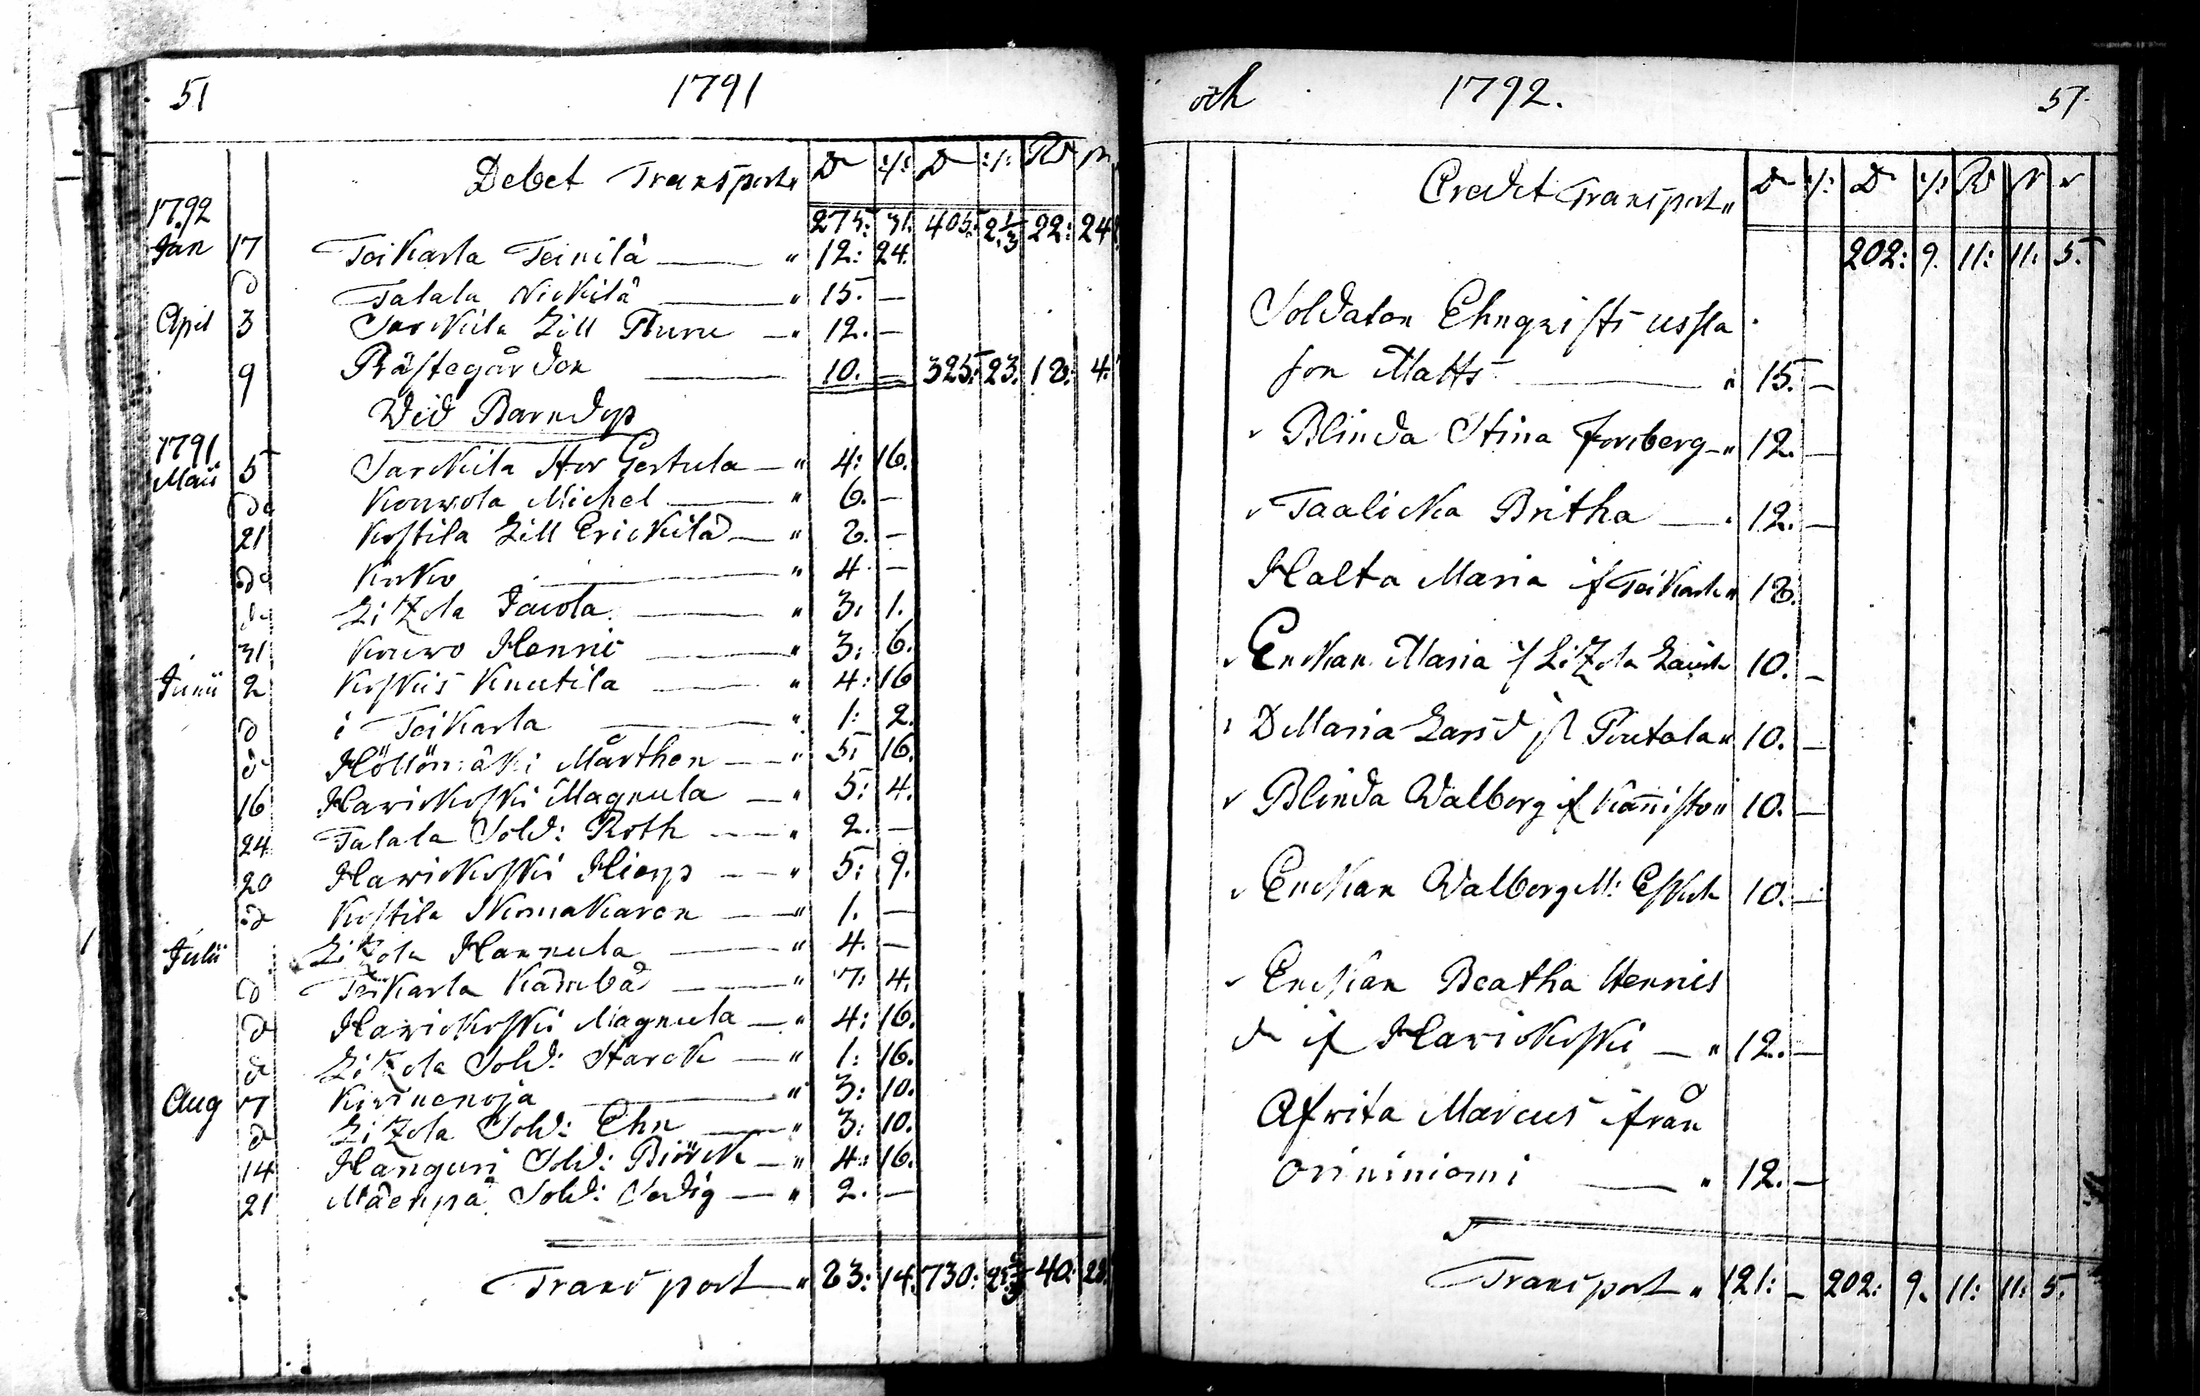 51 1791
Debet Transport " D :/: D :/: Rd
1792 275: 31. 405: 2 1/3 22: 24
Jan 17 Toikarla Teinilä — " 12: 24.
d Talala Nickilä — " 15. —
April 3 Jackiila Lill Thuru — " 12. —
9 Prästegården — 10. — 325: 23. 18: 4.
Wid Barndop
1791
Maii 5 Jackiila Stor Gertula — " 4: 16.
do Kouwola Michel — " 6. —
21 Kostila Lill Erickilä — " 2. —
do Kirko — " 4 —
do LiZola Jacola — " 3. 1.
31 Kouwo Henric — " 3: 6.
Junii 2 Koskis Knutila — " 4: 16
d i Toikarla — " 1: 2.
d Höllönmäki Mårthen — " 5: 16.
16 Harickoski Magnula — " 5: 4.
24 Talala Sold: Roth — " 2. —
20 Harickoski Hierp — " 5: 9.
d Kostila Skomakaren — " 1. —
Julii LiZola Hannula — " 4. —
d Toikarla — " 7: 4.
d Harickoski Magnula — " 4: 16.
d LiZola Sold: Starck — " 1: 16.
Aug 7 Kivinenoja — " 3: 10.
d LiZola Sold: Ehn — " 3: 10.
14 Hanguri Sold: Biörck — " 4: 16.
21 Mäenpä Sold: — " 2. —
Transport " 83: 14. 730: 40: 28.
och 1792. 51
Credit Transport " D :/: D :/: Rd
202: 9. 11: 11. 5.
Soldaten Ehnqvists ussla
son Matts — " 15. —
Blinda Stina Forsberg — " 12. —
Taalicka Britha — . 12. —
Halta Maria if Toikarla " 18.
Enckan Maria if LiZola 10. —
D Maria Larsd if Pirutala " 10. —
Blinda Walborg if Kannisto " 10. —
Enckan Walborg M: 10. —
Enckan Beatha Henrics
dr if Harickoski — " 12. —
Afvita Marcus ifrån
Orininiemi — " 12. —
Transport " 121: — 202: 9. 11: 11: 5.